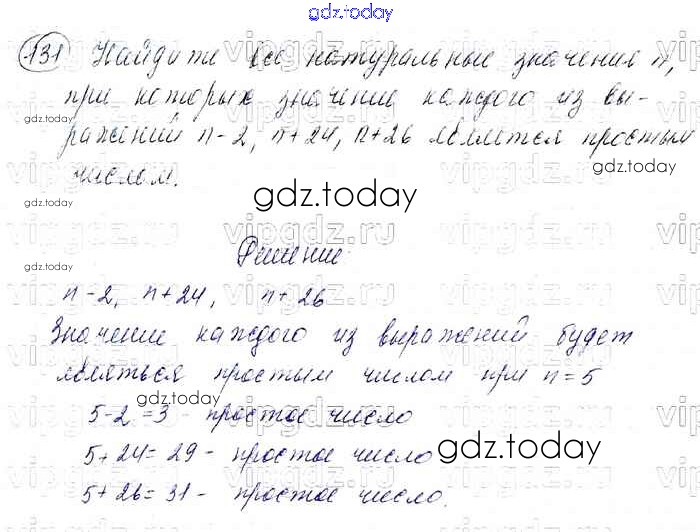 gdz.today
131 Найдите все натуральные значения n,
при которых значение каждого из вы-
gdz.today
ражений n-2, n+24, n+26 является простым
числом.
gdz.today
gdz.today
gdz.today
Решение
gdz.today
n-2, n+24, n+26
Значение каждого из выражений будет
являться простым числом при n=5
gdz.today
5-2=3 - простое число
5+24=29 - простое число
gdz.today
5+26=31 - простое число.